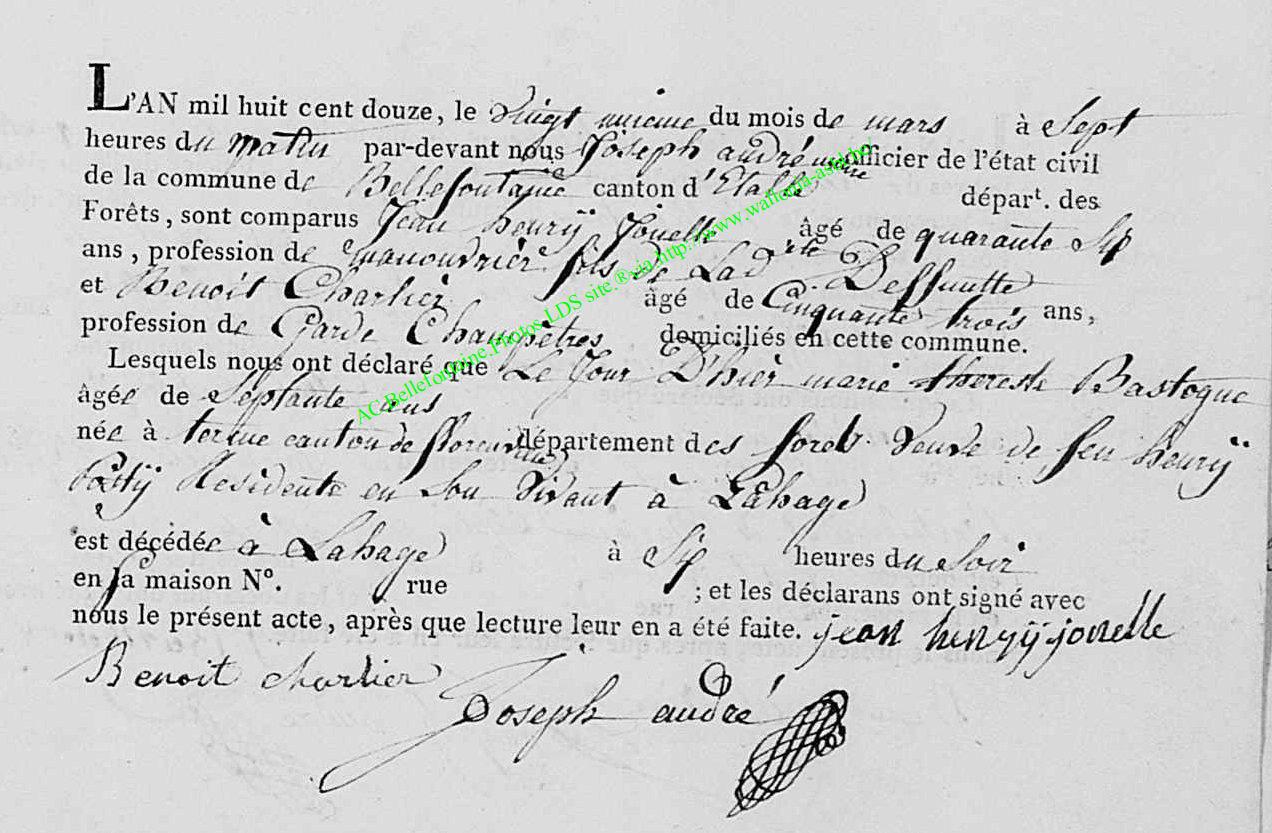 L'AN mil huit cent douze, le Vingt unieme du mois de mars à Sept
heures du matin par-devant nous Joseph andré maire officier de l'état civil
de la commune de Bellefontaine canton d'Etalle départ. des
Forêts, sont comparus Jean henrÿ Jonelle âgé de quarante Six
ans, profession de manouvrier fils de Lad ite Deffuntte
et Benoit Charlier âgé de Cinquante trois ans,
profession de Garde Champètres domiciliés en cette commune.
Lesquels nous ont déclaré que Le Jour D'hier marie therese Bastogne
âgée de Septante ans
née à termes canton de florenville département des forets. Veuve de feu henrÿ
Residente en Son Vivant à Lahage
est décédée à Lahage à Six heures du Soir
en sa maison N°. rue ; et les déclarans ont signé avec
nous le présent acte, après que lecture leur en a été faite. jean henryÿ jonelle
Benoit charlier
Joseph andré
AC.Bellefontaine.Photos.LDS site.®via http://www.wallonia-asbl.be